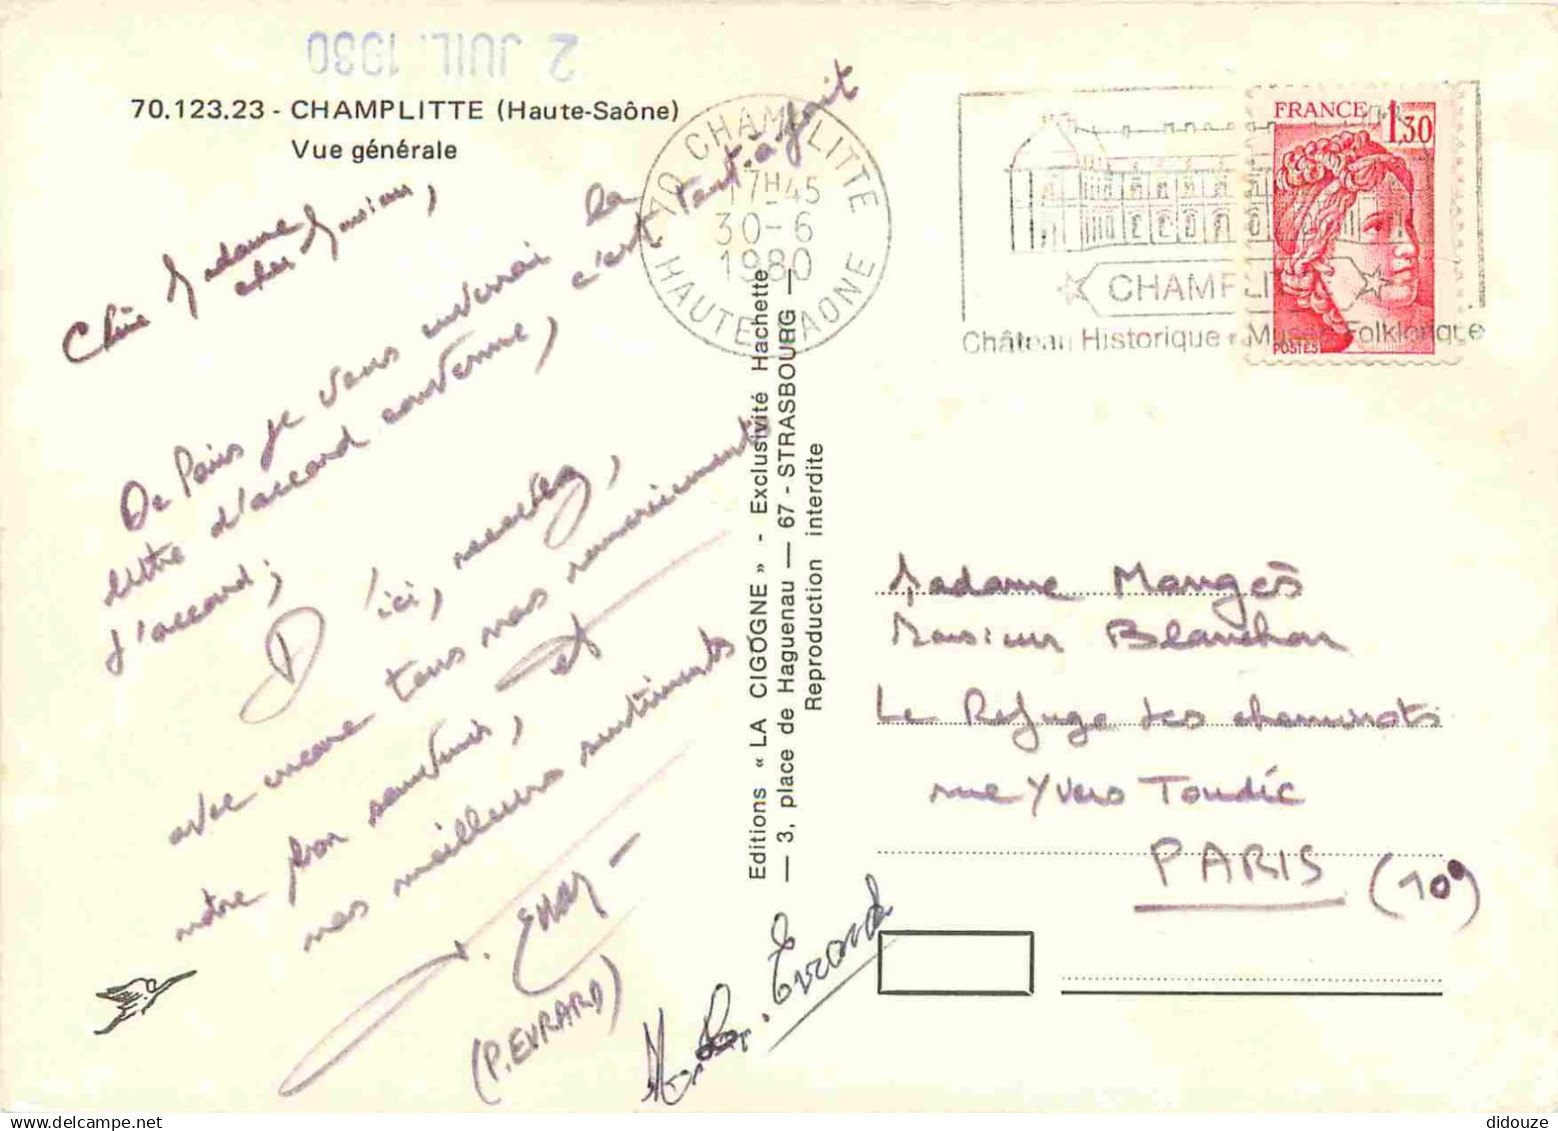 2 JUIL. 1980
70.123.23 - CHAMPLITTE (Haute-Saône)
Vue générale
70 CHAMPLITTE
17H45
30-6
1980
HAUTE-SAONE
CHAMPLITTE
Château Historique - Musée Folklorique
FRANCE 1,30
POSTES
Chère Madame,
cher Monsieur,
De Paris je vous enverrai la
lettre d'accord convenue, c'est tout à fait
d'accord;
D'ici, recevez,
avec encore tous nos remerciements
notre bon souvenir, et
nos meilleurs sentiments
P. Evrard
(P. EVRARD)
Evrard
Editions « LA CIGOGNE » - Exclusivité Hachette
— 3, place de Haguenau — 67 - STRASBOURG —
Reproduction interdite
Madame Mangès
Monsieur Blanchon
Le Refuge des cheminots
rue Yves Toudic
PARIS (10e)
didouze